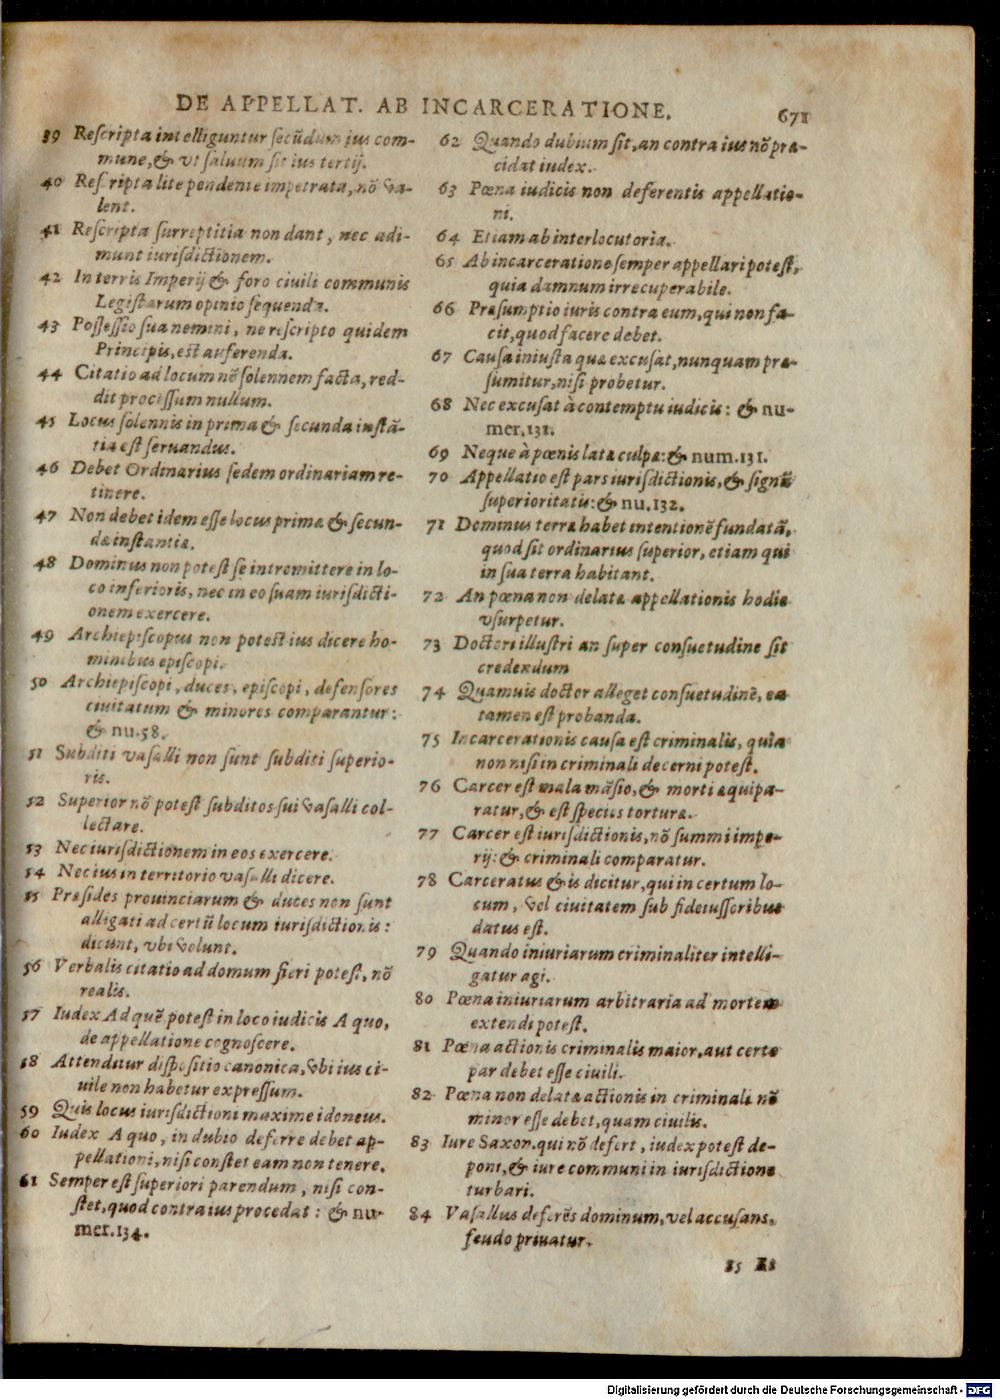 DE APPELLAT. AB INCARCERATIONE. 671
39 Reſcripta intelliguntur ſecũdum ius com-
mune, & vt ſaluum ſit ius tertij.
40 Reſcripta lite pendente impetrata, nõ va-
lent.
41 Reſcripta ſurreptitia non dant, nec adi-
munt iuriſdictionem.
42 In terris Imperij & foro ciuili communis
Legiſtarum opinio ſequenda.
43 Poſſeſſio ſua nemini, ne reſcripto quidem
Principis, eſt auferenda.
44 Citatio ad locum nõ ſolennem facta, red-
dit proceſſum nullum.
45 Locus ſolennis in prima & ſecunda inſtã-
tia eſt ſeruandus.
46 Debet Ordinarius ſedem ordinariam re-
tinere.
47 Non debet idem eſſe locus primæ & ſecun-
dæ inſtantiæ.
48 Dominus non poteſt ſe intromittere in lo-
co inferioris, nec in eo ſuam iuriſdicti-
onem exercere.
49 Archiepiſcopus non poteſt ius dicere ho-
minibus epiſcopi.
50 Archiepiſcopi, duces, epiſcopi, defenſores
ciuitatum & minores comparantur:
& nu.58.
51 Subditi vaſalli non ſunt ſubditi ſuperio-
ris.
52 Superior nõ poteſt ſubditos ſui vaſalli col-
lectare.
53 Nec iuriſdictionem in eos exercere.
54 Nec ius in territorio vaſalli dicere.
55 Præſides prouinciarum & duces non ſunt
alligati ad certũ locum iuriſdictionis:
dicunt, vbi volunt.
56 Verbalis citatio ad domum fieri poteſt, nõ
realis.
57 Iudex Ad quẽ poteſt in loco iudicis A quo,
de appellatione cognoſcere.
58 Attenditur diſpoſitio canonica, vbi ius ci-
uile non habetur expreſſum.
59 Quis locus iuriſdictioni maxime idoneus.
60 Iudex A quo, in dubio deferre debet ap-
pellationi, niſi conſtet eam non tenere.
61 Semper eſt ſuperiori parendum, niſi con-
ſtet, quod contra ius procedat: & nu-
mer.134.
62 Quando dubium ſit, an contra ius nõ præ-
cidat iudex.
63 Pœna iudicis non deferentis appellatio-
ni.
64 Etiam ab interlocutoria.
65 Ab incarceratione ſemper appellari poteſt,
quia damnum irrecuperabile.
66 Præſumptio iuris contra eum, qui non fa-
cit, quod facere debet.
67 Cauſa iniuſta quæ excuſat, nunquam præ-
ſumitur, niſi probetur.
68 Nec excuſat à contemptu iudicis: & nu-
mer.131.
69 Neque à pœnis latæ culpæ: & num.131.
70 Appellatio eſt pars iuriſdictionis, & ſignũ
ſuperioritatis: & nu.132.
71 Dominus terræ habet intentionẽ fundatã,
quod ſit ordinarius ſuperior, etiam qui
in ſua terra habitant.
72 An pœna non delatæ appellationis hodie
vſurpetur.
73 Doctori illuſtri an ſuper conſuetudine ſit
credendum
74 Quamuis doctor alleget conſuetudinẽ, ea
tamen eſt probanda.
75 Incarcerationis cauſa eſt criminalis, quia
non niſi in criminali decerni poteſt.
76 Carcer eſt mala mãſio, & morti æquipa-
ratur, & eſt ſpecies torturæ.
77 Carcer eſt iuriſdictionis, nõ ſummi impe-
rij: & criminali comparatur.
78 Carceratus & is dicitur, qui in certum lo-
cum, vel ciuitatem ſub fideiuſſoribus
datus eſt.
79 Quando iniuriarum criminaliter intelli-
gatur agi.
80 Pœna iniuriarum arbitraria ad mortem
extendi poteſt.
81 Pœna actionis criminalis maior, aut certe
par debet eſſe ciuili.
82 Pœna non delatæ actionis in criminali nõ
minor eſſe debet, quam ciuilis.
83 Iure Saxon. qui nõ defert, iudex poteſt de-
poni, & iure communi in iuriſdictione
turbari.
84 Vaſallus deferẽs dominum, vel accuſans,
feudo priuatur.
85
Digitalisierung gefördert durch die Deutsche Forschungsgemeinschaft - DFG